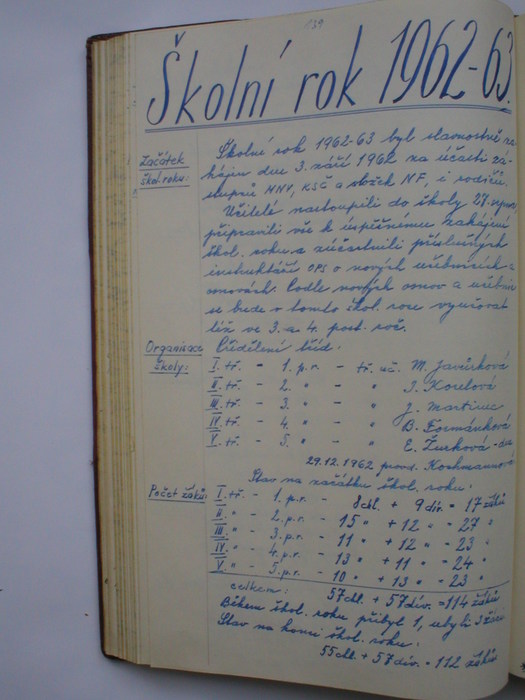 139
Školní rok 1962-63.
Začátek
škol. roku:
Školní rok 1962-63 byl slavnostně za-
hájen dne 3. září 1962 za účasti zá-
stupců MNV, KSČ a složek NF, i rodičů.
Učitelé nastoupili do školy 27. srpna
připravili vše k úspěšnému zahájení
škol. roku a zúčastnili příslušných
instruktáží OPS o nových učebnicích a
osnovách. Podle nových osnov a učebnic
se bude v tomto škol. roce vyučovat
též ve 3. a 4. post. roč.
Organisace
školy:
Přidělení tříd:
I. tř. - 1. p.r. - tř. uč. M. Javůrková
II. tř. - 2. " " J. Korelová
III. tř. - 3. " " J. Martinec
IV. tř. - 4. " " B. Formánková
V. tř. - 5. " " E. Žurková - do
29.12.1962 provd. Koshmannová
Počet žáků:
Stav na začátku škol. roku:
I. tř. - 1. p.r. - 8 chl. + 9 dív. = 17 žáků
II. " - 2. p.r. - 15 " + 12 " - 27 "
III. " - 3. p.r. - 11 " + 12 " - 23 "
IV. " - 4. p.r. - 13 " + 11 " - 24 "
V. " - 5. p.r. - 10 " + 13 " - 23 "
celkem: 57 chl. + 57 dív. = 114 žáků
Během škol. roku přibyl 1, ubyli 3 žáci
Stav na konci škol. roku:
55 chl. + 57 dív. = 112 žáků